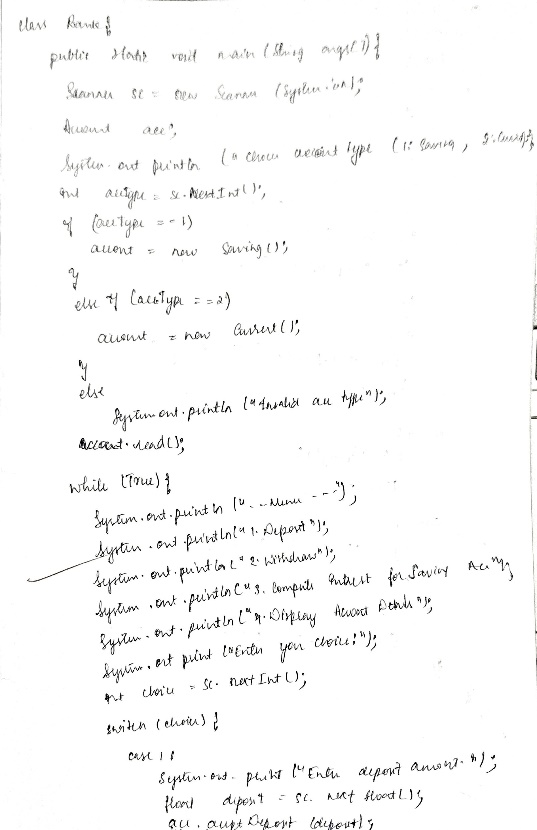 class Bank {
public static void main (String args[]) {
Scanner sc = new Scanner (System.in);
Account acc;
System.out println ("choose account type (1: Saving, 2: Current)");
int acctype = sc.NextInt();
if (acctype == 1)
account = new Saving();
}
else if (accType == 2)
account = new Current();
}
else
System out.println ("Invalid acc type");
account.read();
while (True) {
System.out.println ("---Menu---");
System.out.println("1. Deposit");
System.out.println("2. Withdraw");
System.out.println("3. Compute Interest for Saving Acc");
System.out.println("4. Display Account Details");
System.out print ("Enter your choice:");
int choice = sc.nextInt();
switch (choice) {
case 1:
System.out.print ("Enter deposit amount:");
float deposit = sc.next float();
acc.accept Deposit (deposit);